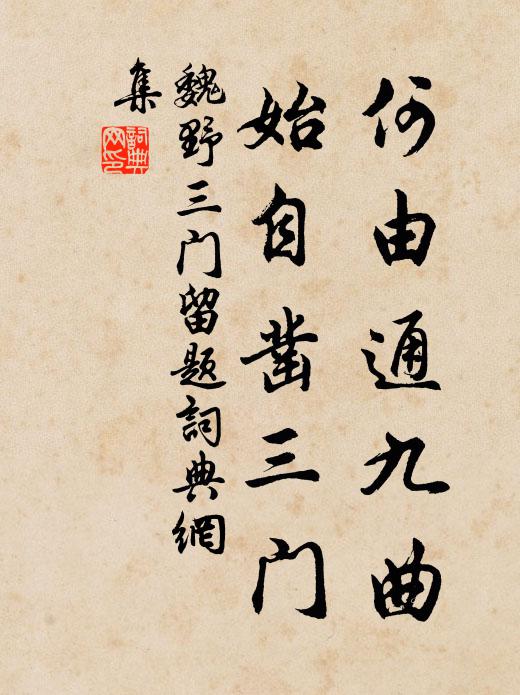 何由通九曲
始自凿三门
魏野三门留题詞典網
集
詞典网印